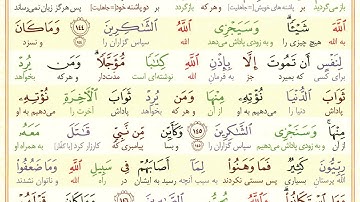 باز می‌گردید بر پاشنه‌های خویش(=جاهلیت) و هر که بازگردد بر دو پاشنه خود(=جاهلیت) پس هرگز زیان نمی‌رساند
ٱللَّهَ شَيْـًٔا ۗ وَسَيَجْزِى ٱللَّهُ ٱلشَّـٰكِرِينَ ١٤٤ وَمَا كَانَ
به الله هیچ چیزی را و به زودی پاداش می‌دهد الله سپاس گزاران را و نسزد
لِنَفْسٍ أَن تَمُوتَ إِلَّا بِإِذْنِ ٱللَّهِ كِتَـٰبًا مُّؤَجَّلًا ۗ وَمَن يُرِدْ
برای کسی که بمیرد جز به فرمان الله نوشته‌ای است مدت‌دار و هر که بخواهد
ثَوَابَ ٱلدُّنْيَا نُؤْتِهِۦ مِنْهَا وَمَن يُرِدْ ثَوَابَ ٱلْـَٔاخِرَةِ نُؤْتِهِۦ
پاداش دنیا را می‌دهیم به او از آن و هر که بخواهد پاداش آخرت را می‌دهیم به او
مِنْهَا ۚ وَسَنَجْزِى ٱلشَّـٰكِرِينَ ١٤٥ وَكَأَيِّن مِّن نَّبِىٍّ قَـٰتَلَ مَعَهُۥ
از آن و به زودی پاداش می‌دهیم سپاس گزاران را و بسا پیامبری که کارزار کرد به همراه او
رِبِّيُّونَ كَثِيرٌ فَمَا وَهَنُوا۟ لِمَآ أَصَابَهُمْ فِى سَبِيلِ ٱللَّهِ وَمَا ضَعُفُوا۟
الله پرستان بسیاری پس سستی نکردند به سبب آنچه رسید به ایشان در راه الله و ناتوان نشدند